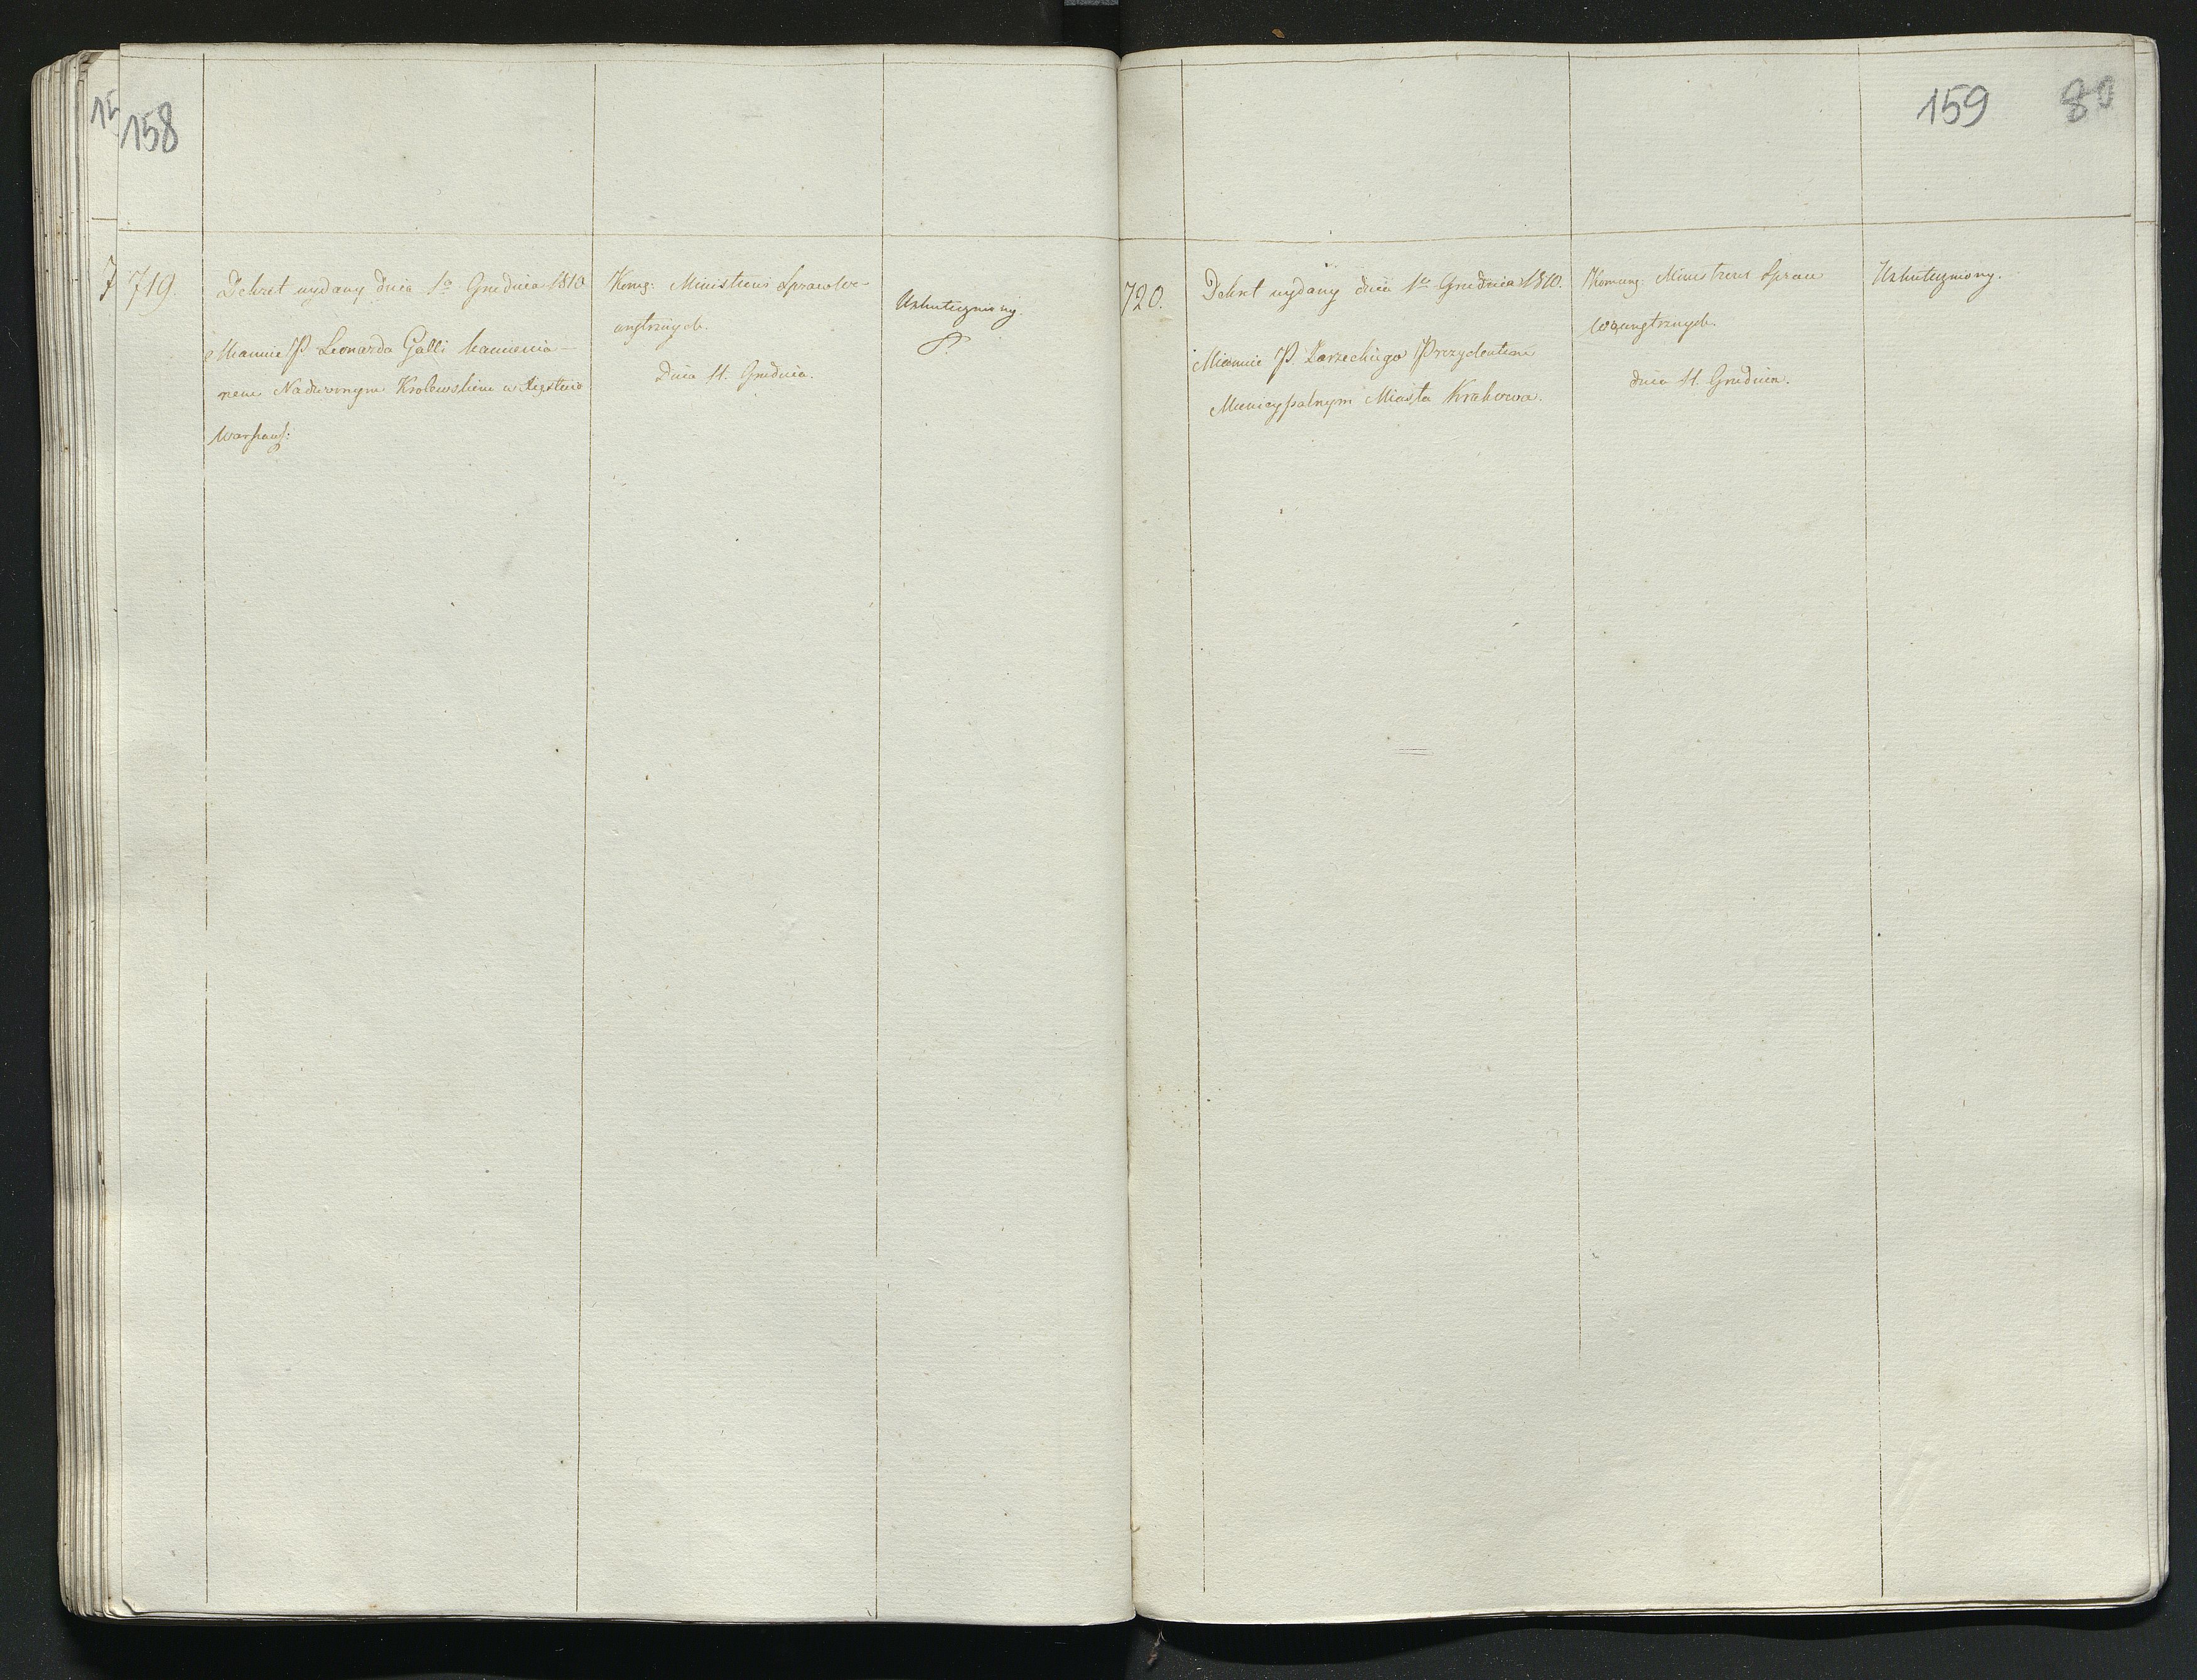 158
719.
Dekret wydany dnia 1o Grudnia 1810
Mianuie P Leonarda Galli kamienia-
rem Nadwornym Krolewskim w Xięstwie
Warszaws:
Komg: Ministrowi Spraw We-
wnętrznych.
Dnia 11. Grudnia.
Uskuteczniony.
159 80
720.
Dekret wydany dnia 1o Grudnia 1810.
Mianuie P. Zarzeckiego Prezydentem
Municypalnym Miasta Krakowa.
Ministrowi Spraw
Wewnętrznych.
dnia 11. Grudnia.
Uskuteczniony.